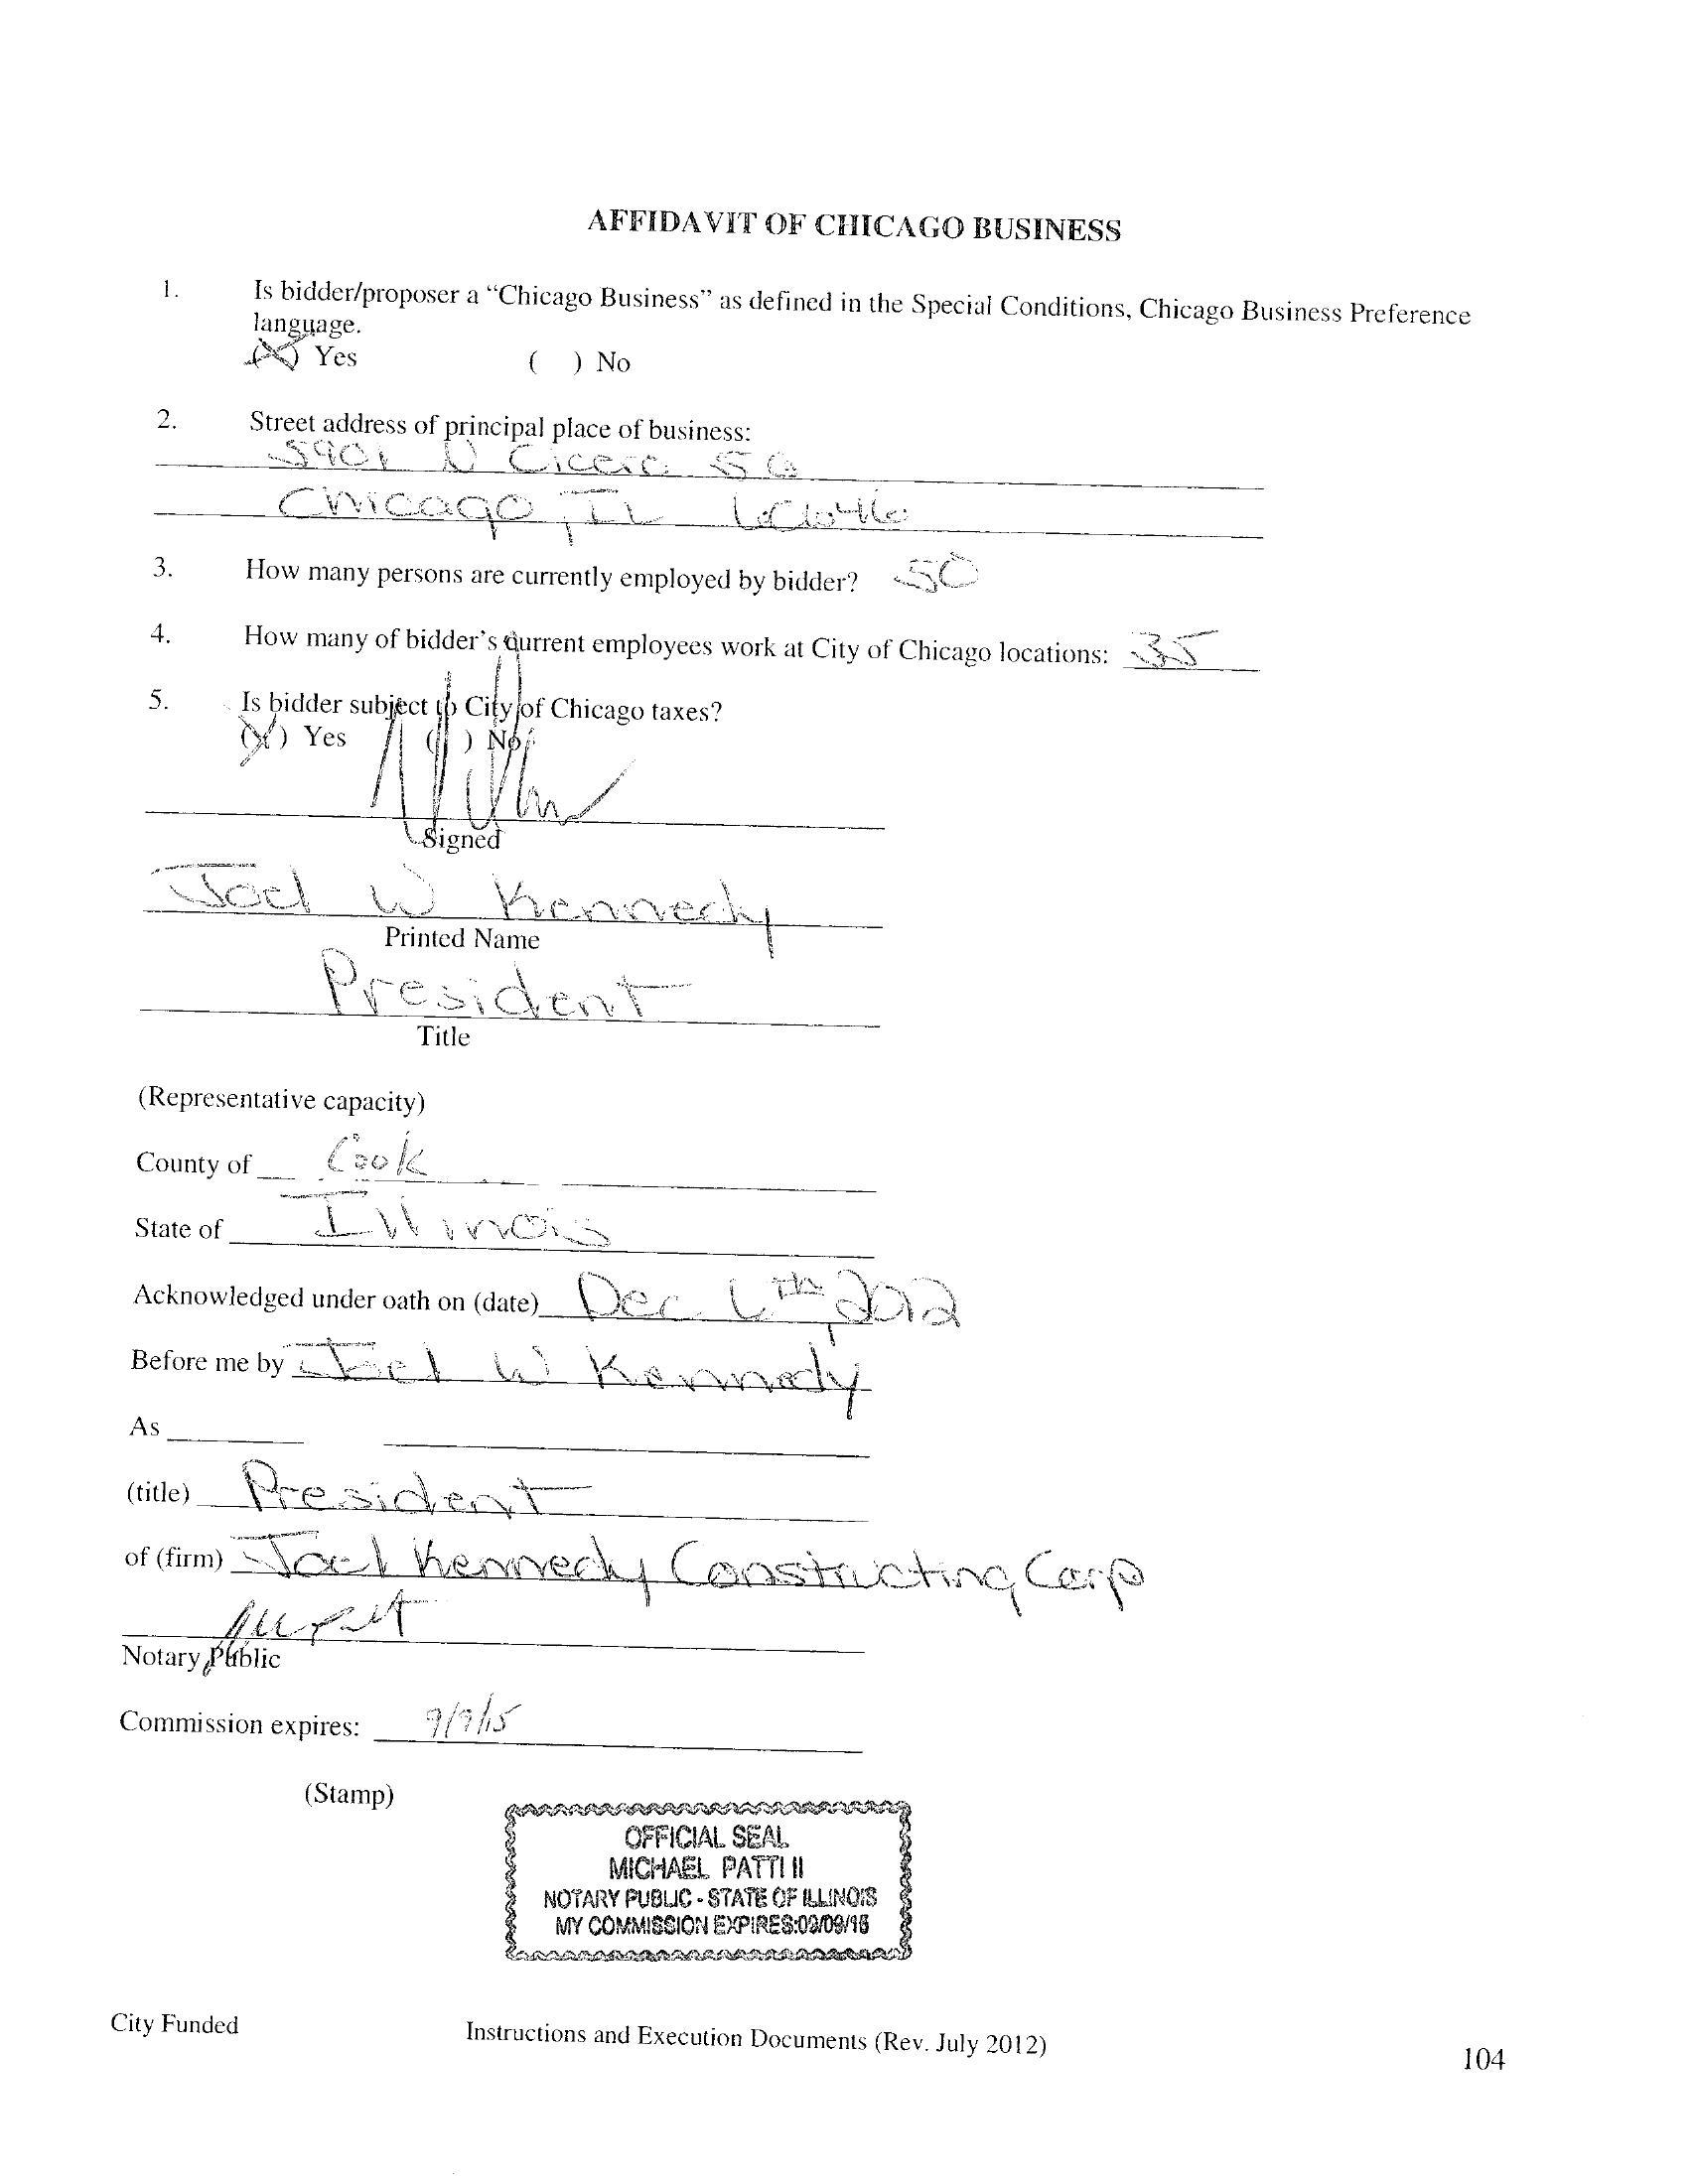 AFFIDAVIT OF CHICAGO BUSINESS
1. Is bidder/proposer a “Chicago Business” as defined in the Special Conditions, Chicago Business Preference
language.
(X) Yes ( ) No
2. Street address of principal place of business:
5901 N Cicero
Chicago, IL 60646
3. How many persons are currently employed by bidder? 50
4. How many of bidder's current employees work at City of Chicago locations: 35
5. Is bidder subject to City of Chicago taxes?
(X) Yes ( ) No
Signed
Joel W Kennedy
Printed Name
President
Title
(Representative capacity)
County of Cook
State of Illinois
Acknowledged under oath on (date) Dec 6th, 2012
Before me by Joel W Kennedy
As
(title) President
of (firm) Joel Kennedy Constructing Corp
Notary Public
Commission expires: 9/9/15
(Stamp)
OFFICIAL SEAL
MICHAEL PATTI II
NOTARY PUBLIC - STATE OF ILLINOIS
MY COMMISSION EXPIRES:09/09/15
City Funded Instructions and Execution Documents (Rev. July 2012)
104